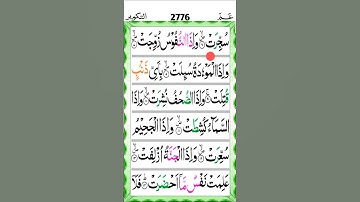 عم 2776 التكوير
سُجِّرَتْ ۙ وَاِذَا النُّفُوْسُ زُوِّجَتْ ۙ
وَاِذَا الْمَوْءٗدَةُ سُىِٕلَتْ ۙ بِاَيِّ ذَنْۢبٍ
قُتِلَتْ ۚ وَاِذَا الصُّحُفُ نُشِرَتْ ۙ وَاِذَا
السَّمَآءُ كُشِطَتْ ۙ وَاِذَا الْجَحِيْمُ
سُعِّرَتْ ۙ وَاِذَا الْجَنَّةُ اُزْلِفَتْ ۙ
عَلِمَتْ نَفْسٌ مَّاۤ اَحْضَرَتْ ۗ فَلَاۤ